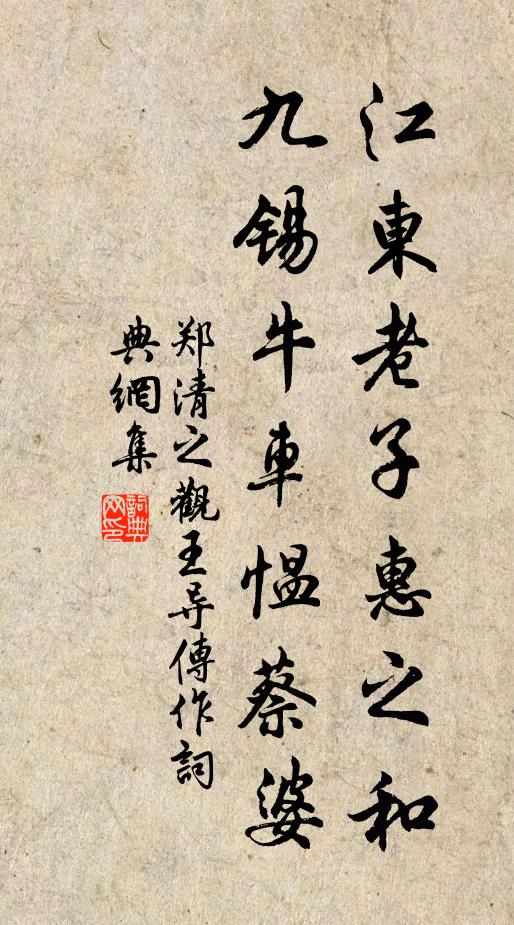 江東老子惠之和
九锡牛車愠蔡婆
郑清之觀王导傳作詞
典網集
詞典
网印